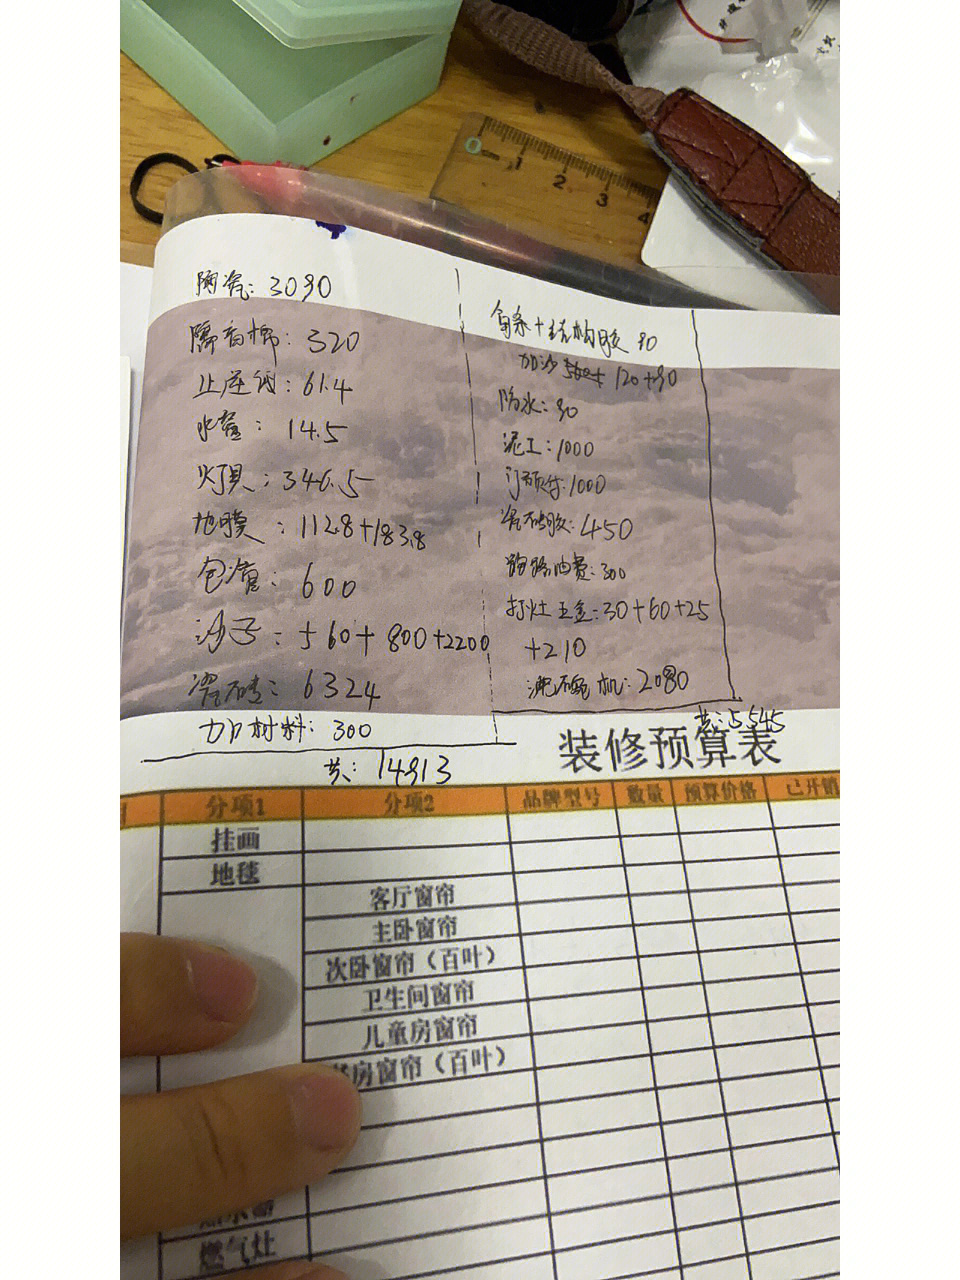 陶瓷：3090
隔音棉：320
止逆阀：61.4
水管：14.5
灯具：346.5
地膜：112.8+183.8
包管：600
沙子：560+800+2200
瓷砖：6324
加材料：300
共：14913
角条+结构胶 90
加沙 120+90
防水：90
泥工：1000
门预付：1000
瓷砖胶：450
油费：300
打灶五金：30+60+25
+210
洗碗机：2080
共：5545
装修预算表
分项1 分项2 品牌型号 数量 预算价格 已开销
挂画
地毯
客厅窗帘
主卧窗帘
次卧窗帘（百叶）
卫生间窗帘
儿童房窗帘
房窗帘（百叶）
燃气灶
0 1 2 3 4